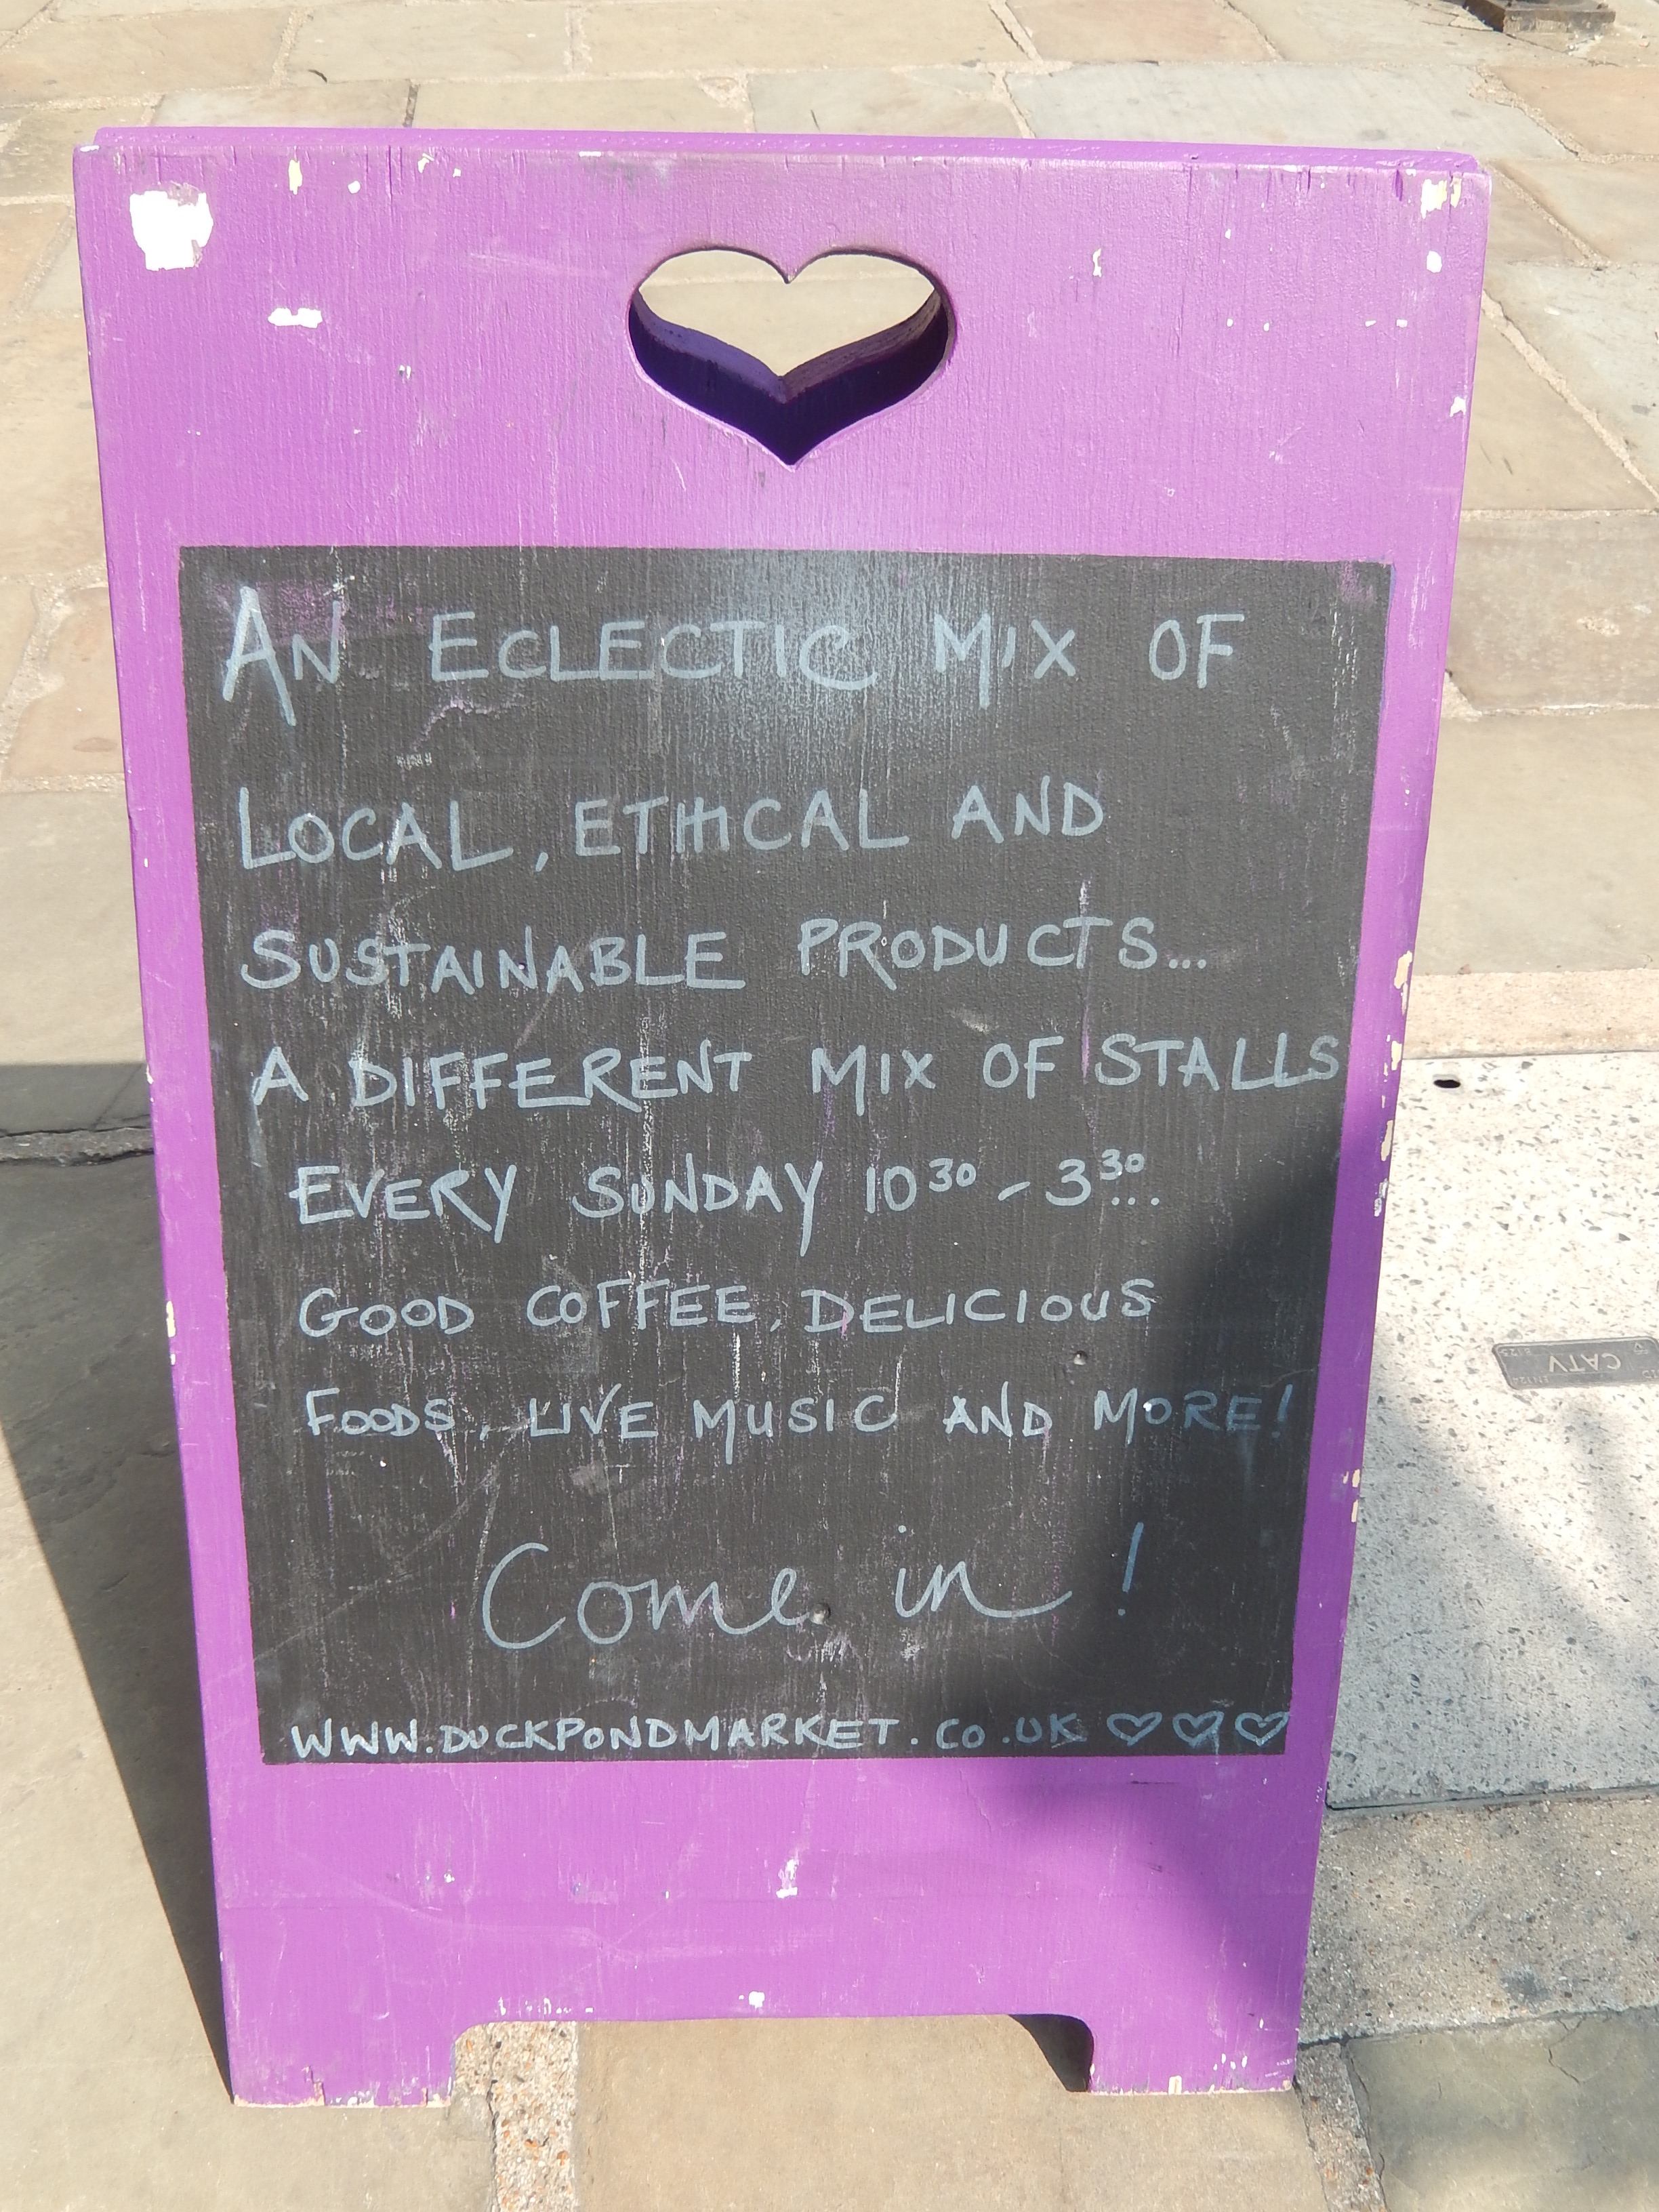 AN ECLECTIC MIX OF
LOCAL, ETHICAL AND
SUSTAINABLE PRODUCTS...
A DIFFERENT MIX OF STALLS
EVERY SUNDAY 10³⁰ - 3³⁰...
GOOD COFFEE, DELICIOUS
FOODS, LIVE MUSIC AND MORE!
Come in!
WWW.DUCKPONDMARKET.CO.UK ♡♡♡
CATV